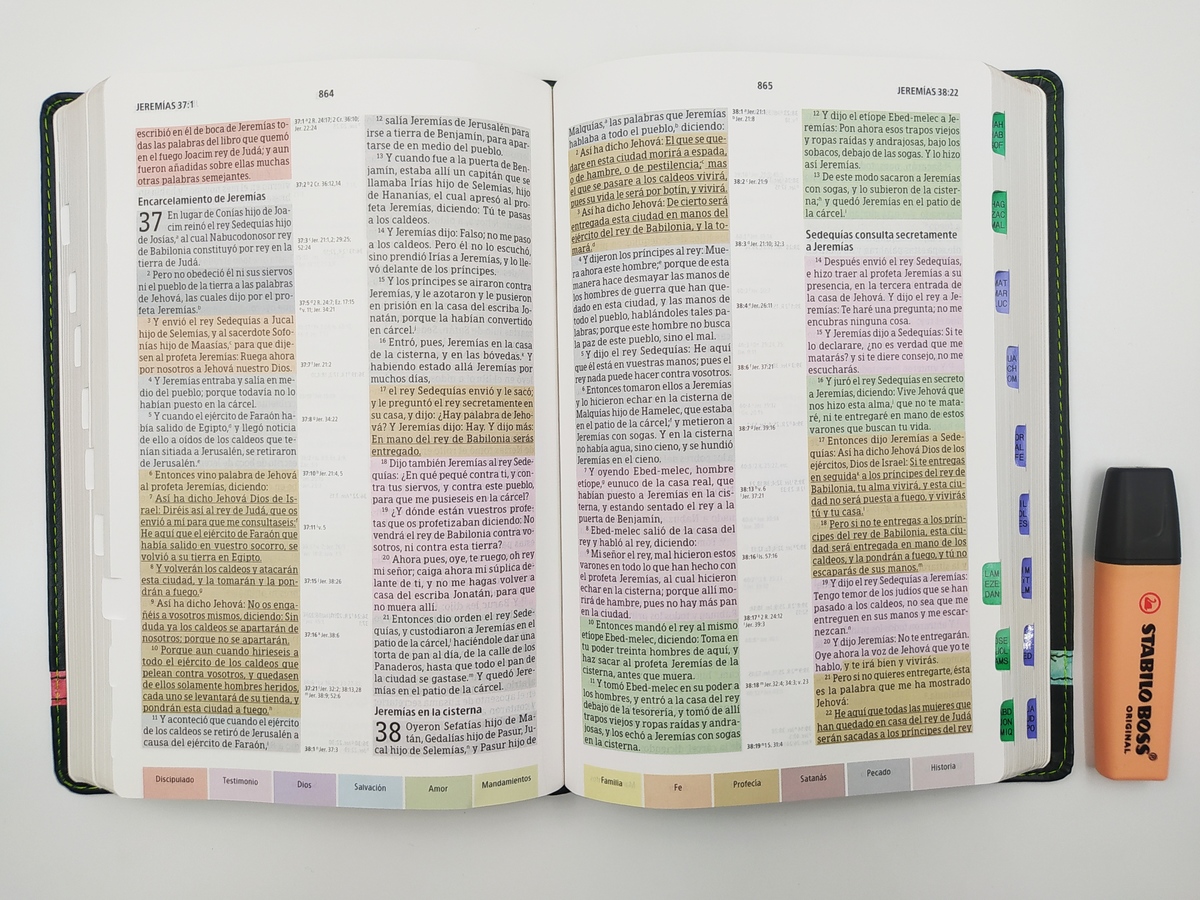 JEREMÍAS 37:1
864
escribió en él de boca de Jeremías to-
das las palabras del libro que quemó
en el fuego Joacim rey de Judá; y aun
fueron añadidas sobre ellas muchas
otras palabras semejantes.
Encarcelamiento de Jeremías
37 En lugar de Conías hijo de Joa-
cim reinó el rey Sedequías hijo
de Josías,ᵃ al cual Nabucodonosor rey
de Babilonia constituyó por rey en la
tierra de Judá.
2 Pero no obedeció él ni sus siervos
ni el pueblo de la tierra a las palabras
de Jehová, las cuales dijo por el pro-
feta Jeremías.ᵇ
3 Y envió el rey Sedequías a Jucal
hijo de Selemías, y al sacerdote Sofo-
nías hijo de Maasías,ᶜ para que dije-
sen al profeta Jeremías: Ruega ahora
por nosotros a Jehová nuestro Dios.
4 Y Jeremías entraba y salía en me-
dio del pueblo; porque todavía no lo
habían puesto en la cárcel.
5 Y cuando el ejército de Faraón ha-
bía salido de Egipto,ᵈ y llegó noticia
de ello a oídos de los caldeos que te-
nían sitiada a Jerusalén, se retiraron
de Jerusalén.ᵉ
6 Entonces vino palabra de Jehová
al profeta Jeremías, diciendo:
7 Así ha dicho Jehová Dios de Is-
rael: Diréis así al rey de Judá, que os
envió a mí para que me consultaseis:ᶠ
He aquí que el ejército de Faraón que
había salido en vuestro socorro, se
volvió a su tierra en Egipto.
8 Y volverán los caldeos y atacarán
esta ciudad, y la tomarán y la pon-
drán a fuego.ᵍ
9 Así ha dicho Jehová: No os enga-
ñéis a vosotros mismos, diciendo: Sin
duda ya los caldeos se apartarán de
nosotros; porque no se apartarán.
10 Porque aun cuando hirieseis a
todo el ejército de los caldeos que
pelean contra vosotros, y quedasen
de ellos solamente hombres heridos,
cada uno se levantará de su tienda, y
pondrán esta ciudad a fuego.ʰ
11 Y aconteció que cuando el ejército
de los caldeos se retiró de Jerusalén a
causa del ejército de Faraón,ⁱ
37:1 ᵃ 2 R. 24:17; 2 Cr. 36:10;
Jer. 22:24
37:2 ᵇ 2 Cr. 36:12,14
37:3 ᶜ Jer. 21:1,2; 29:25;
52:24
37:5 ᵈ 2 R. 24:7; Ez. 17:15
ᵉ v. 11; Jer. 34:21
37:7 ᶠ Jer. 21:2
37:8 ᵍ Jer. 34:22
37:10 ʰ Jer. 21:4,5
37:11 ⁱ v. 5
37:15 ʲ Jer. 38:26
37:16 ᵏ Jer. 38:6
37:21 ˡ Jer. 32:2; 38:13,28
ᵐ Jer. 38:9; 52:6
38:1 ⁿ Jer. 37:3
12 salía Jeremías de Jerusalén para
irse a tierra de Benjamín, para apar-
tarse de en medio del pueblo.
13 Y cuando fue a la puerta de Ben-
jamín, estaba allí un capitán que se
llamaba Irías hijo de Selemías, hijo
de Hananías, el cual apresó al pro-
feta Jeremías, diciendo: Tú te pasas
a los caldeos.
14 Y Jeremías dijo: Falso; no me paso
a los caldeos. Pero él no lo escuchó,
sino prendió Irías a Jeremías, y lo lle-
vó delante de los príncipes.
15 Y los príncipes se airaron contra
Jeremías, y le azotaron y le pusieron
en prisión en la casa del escriba Jo-
natán, porque la habían convertido
en cárcel.ʲ
16 Entró, pues, Jeremías en la casa
de la cisterna, y en las bóvedas.ᵏ Y
habiendo estado allá Jeremías por
muchos días,
17 el rey Sedequías envió y le sacó;
y le preguntó el rey secretamente en
su casa, y dijo: ¿Hay palabra de Jeho-
vá? Y Jeremías dijo: Hay. Y dijo más:
En mano del rey de Babilonia serás
entregado.
18 Dijo también Jeremías al rey Sede-
quías: ¿En qué pequé contra ti, y con-
tra tus siervos, y contra este pueblo,
para que me pusieseis en la cárcel?
19 ¿Y dónde están vuestros profe-
tas que os profetizaban diciendo: No
vendrá el rey de Babilonia contra vo-
sotros, ni contra esta tierra?
20 Ahora pues, oye, te ruego, oh rey
mi señor; caiga ahora mi súplica de-
lante de ti, y no me hagas volver a
casa del escriba Jonatán, para que
no muera allí.
21 Entonces dio orden el rey Sede-
quías, y custodiaron a Jeremías en el
patio de la cárcel,ˡ haciéndole dar una
torta de pan al día, de la calle de los
Panaderos, hasta que todo el pan de
la ciudad se gastase.ᵐ Y quedó Jere-
mías en el patio de la cárcel.
Jeremías en la cisterna
38 Oyeron Sefatías hijo de Ma-
tán, Gedalías hijo de Pasur, Ju-
cal hijo de Selemías,ⁿ y Pasur hijo de
Discipulado
Testimonio
Dios
Salvación
Amor
Mandamientos
865
JEREMÍAS 38:22
Malquías,ᵃ las palabras que Jeremías
hablaba a todo el pueblo,ᵇ diciendo:
2 Así ha dicho Jehová: El que se que-
dare en esta ciudad morirá a espada,
o de hambre, o de pestilencia;ᶜ mas
el que se pasare a los caldeos vivirá,
pues su vida le será por botín, y vivirá.
3 Así ha dicho Jehová: De cierto será
entregada esta ciudad en manos del
ejército del rey de Babilonia, y la to-
mará.ᵈ
4 Y dijeron los príncipes al rey: Mue-
ra ahora este hombre;ᵉ porque de esta
manera hace desmayar las manos de
los hombres de guerra que han que-
dado en esta ciudad, y las manos de
todo el pueblo, hablándoles tales pa-
labras; porque este hombre no busca
la paz de este pueblo, sino el mal.
5 Y dijo el rey Sedequías: He aquí
que él está en vuestras manos; pues el
rey nada puede hacer contra vosotros.
6 Entonces tomaron ellos a Jeremías
y lo hicieron echar en la cisterna de
Malquías hijo de Hamelec, que estaba
en el patio de la cárcel;ᶠ y metieron a
Jeremías con sogas. Y en la cisterna
no había agua, sino cieno, y se hundió
Jeremías en el cieno.
7 Y oyendo Ebed-melec, hombre
etíope,ᵍ eunuco de la casa real, que
habían puesto a Jeremías en la cis-
terna, y estando sentado el rey a la
puerta de Benjamín,
8 Ebed-melec salió de la casa del
rey y habló al rey, diciendo:
9 Mi señor el rey, mal hicieron estos
varones en todo lo que han hecho con
el profeta Jeremías, al cual hicieron
echar en la cisterna; porque allí mo-
rirá de hambre, pues no hay más pan
en la ciudad.
10 Entonces mandó el rey al mismo
etíope Ebed-melec, diciendo: Toma en
tu poder treinta hombres de aquí, y
haz sacar al profeta Jeremías de la
cisterna, antes que muera.
11 Y tomó Ebed-melec en su poder a
los hombres, y entró a la casa del rey
debajo de la tesorería, y tomó de allí
trapos viejos y ropas raídas y andra-
josas, y los echó a Jeremías con sogas
en la cisterna.
38:1 ᵃ Jer. 21:1
ᵇ Jer. 21:8
38:2 ᶜ Jer. 21:9
38:3 ᵈ Jer. 21:10; 32:3
38:4 ᵉ Jer. 26:11
38:6 ᶠ Jer. 37:21
38:7 ᵍ Jer. 39:16
38:13 ʰ v. 6
ⁱ Jer. 37:21
38:16 ʲ Is. 57:16
38:17 ᵏ 2 R. 24:12
ˡ Jer. 39:3
38:18 ᵐ Jer. 32:4; 34:3; v. 23
38:19 ⁿ 1 S. 31:4
12 Y dijo el etíope Ebed-melec a Je-
remías: Pon ahora esos trapos viejos
y ropas raídas y andrajosas, bajo los
sobacos, debajo de las sogas. Y lo hizo
así Jeremías.
13 De este modo sacaron a Jeremías
con sogas, y lo subieron de la cister-
na;ʰ y quedó Jeremías en el patio de
la cárcel.ⁱ
Sedequías consulta secretamente
a Jeremías
14 Después envió el rey Sedequías,
e hizo traer al profeta Jeremías a su
presencia, en la tercera entrada de
la casa de Jehová. Y dijo el rey a Je-
remías: Te haré una pregunta; no me
encubras ninguna cosa.
15 Y Jeremías dijo a Sedequías: Si te
lo declarare, ¿no es verdad que me
matarás? y si te diere consejo, no me
escucharás.
16 Y juró el rey Sedequías en secreto
a Jeremías, diciendo: Vive Jehová que
nos hizo esta alma,ʲ que no te mata-
ré, ni te entregaré en mano de estos
varones que buscan tu vida.
17 Entonces dijo Jeremías a Sede-
quías: Así ha dicho Jehová Dios de los
ejércitos, Dios de Israel: Si te entregas
en seguidaᵏ a los príncipes del rey de
Babilonia, tu alma vivirá, y esta ciu-
dad no será puesta a fuego, y vivirás
tú y tu casa.ˡ
18 Pero si no te entregas a los prín-
cipes del rey de Babilonia, esta ciu-
dad será entregada en mano de los
caldeos, y la pondrán a fuego, y tú no
escaparás de sus manos.ᵐ
19 Y dijo el rey Sedequías a Jeremías:
Tengo temor de los judíos que se han
pasado a los caldeos, no sea que me
entreguen en sus manos y me escar-
nezcan.ⁿ
20 Y dijo Jeremías: No te entregarán.
Oye ahora la voz de Jehová que yo te
hablo, y te irá bien y vivirás.
21 Pero si no quieres entregarte, ésta
es la palabra que me ha mostrado
Jehová:
22 He aquí que todas las mujeres que
han quedado en casa del rey de Judá
serán sacadas a los príncipes del rey
Familia
Fe
Profecía
Satanás
Pecado
Historia
HAG
ZAC
MAL
MAT
MAR
LUC
LAM
EZE
DAN
STABILO BOSS
ORIGINAL